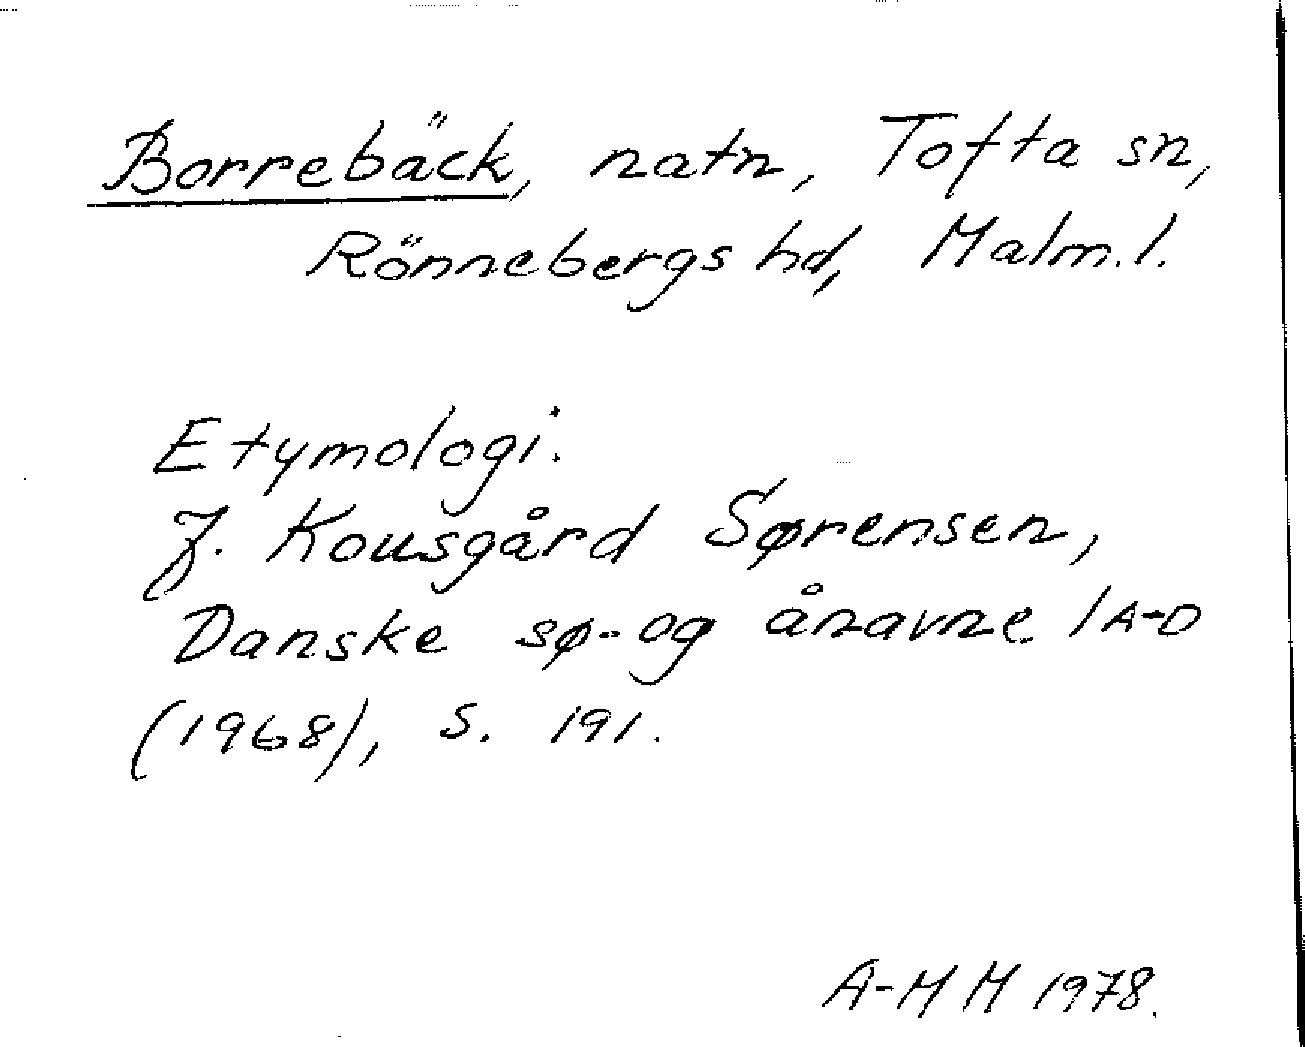 Borrebäck, natn, Tofta sn,
Rönnebergs hd, Malm. l.
Etymologi.
J. Kousgård Sørensen,
Danske sø- og ånavne 1 A-D
(1968), s. 191.
A-M M 1978.